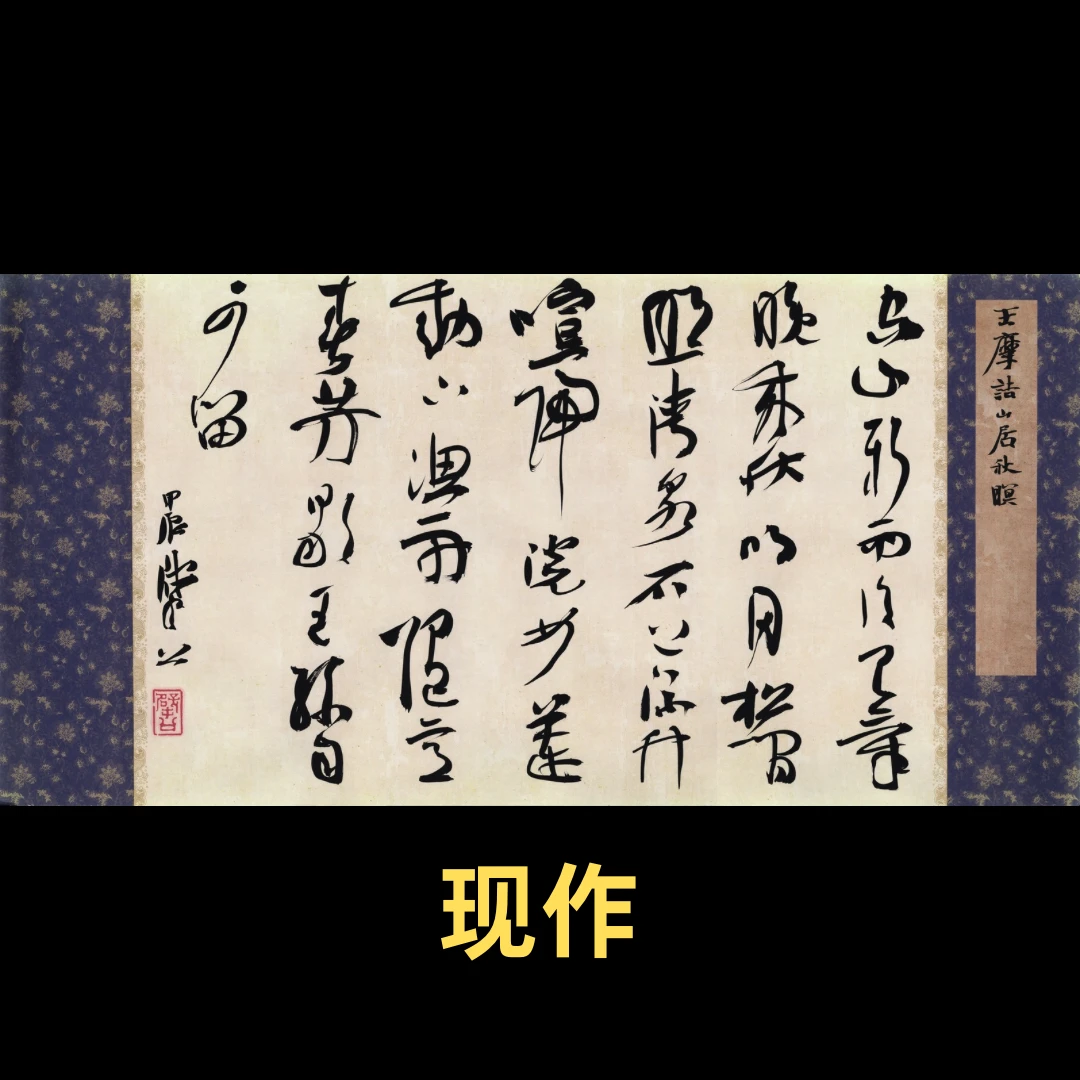 王摩詰山居秋暝
空山新雨後天氣
晚来秋明月松間
照清泉石上流竹
喧歸浣女蓮
動下漁舟隨意
春芳歇王孫自
可留
甲辰
现作